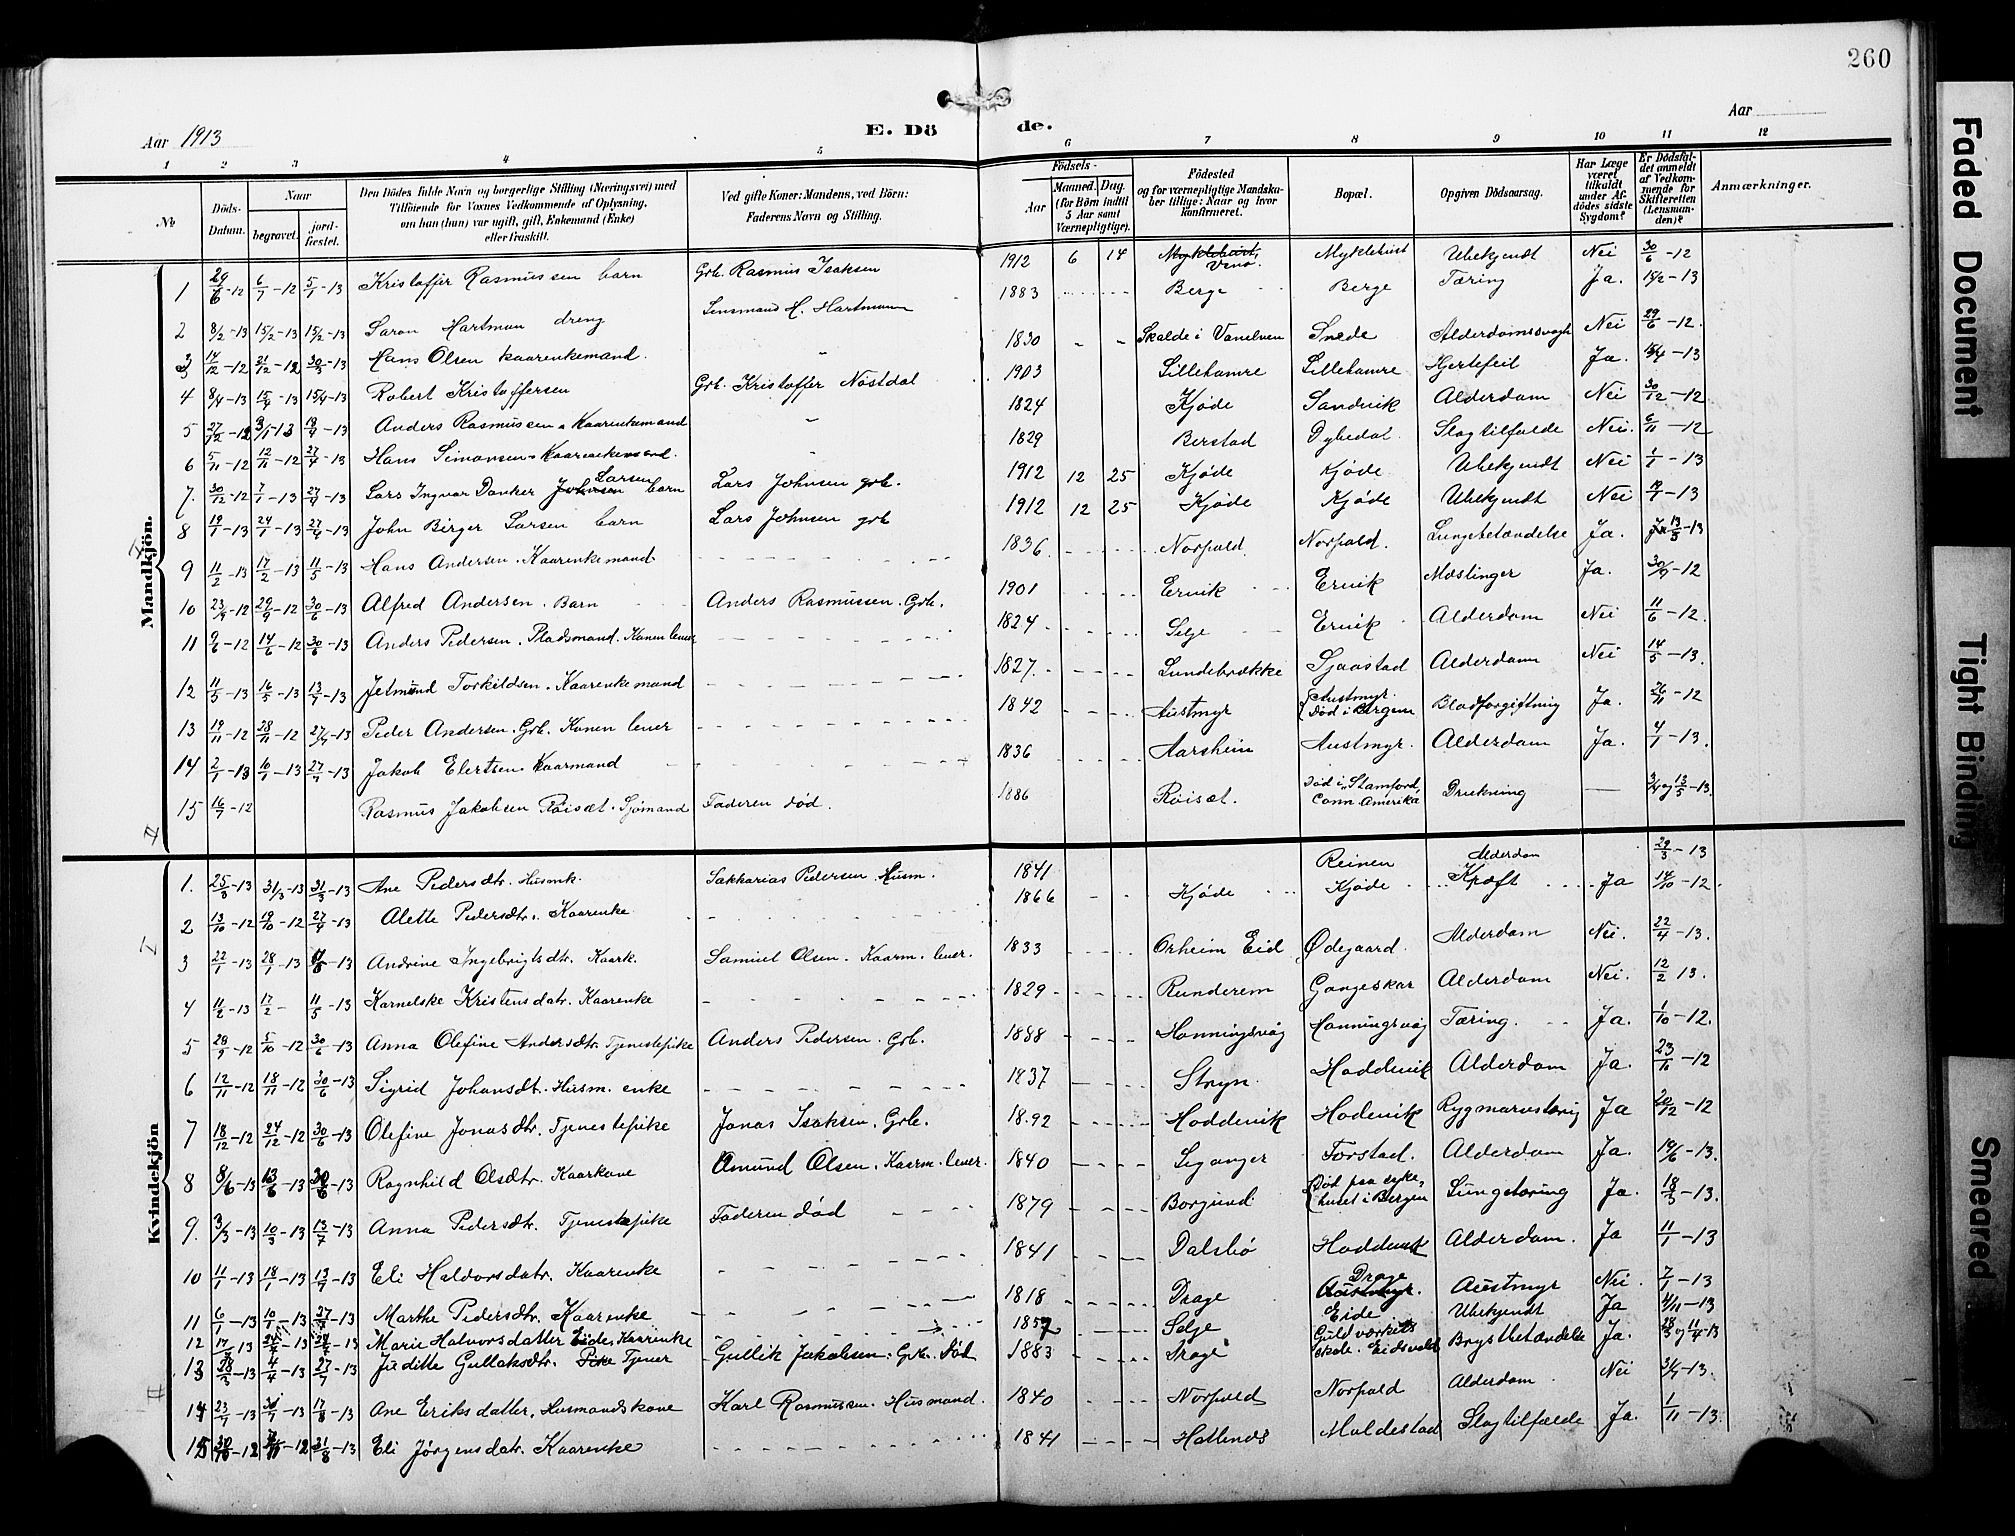 260
Aar 1913
E. Dö de.
Aar
1 2 3 4 5 6 7 8 9 10 11 12
№
Döds-Datum.
Naar
begravet.
jordfæstet.
Den Dödes fulde Navn og borgerlige Stilling (Næringsvei) med
Tilföiende for Voxnes Vedkommende af Oplysning,
om han (hun) var ugift, gift, Enkemand (Enke)
eller fraskilt.
Ved gifte Koner: Mandens, ved Börn:
Faderens Navn og Stilling.
Födsels-
Aar
Maaned. Dag.
(for Börn indtil
5 Aar samt
Værnepligtige).
Födested
og for værnepligtige Mandskaber tillige: Naar og hvor
konfirmeret.
Bopæl.
Opgiven Dödsaarsag.
Har Læge
været
tilkaldt
under Afdödes sidste
Sygdom?
Er Dödsfaldet anmeldt
af Vedkommende for
Skifteretten
(Lensmanden)?
Anmærkninger.
Mandkjön.
1 29/6-12 6/7-12 5/1-13 Kristoffer Rasmussen barn Grb. Rasmus Isaksen 1912 6 14 Myklebust Myklebust Ubekjendt Nei 30/6-12
2 8/2-13 15/2-13 15/2-13 Saron Hartman dreng Lensmand H. Hartmann 1883 Berge Berge Tæring Ja. 15/2-13
3 14/12-12 21/12-12 30/3-13 Hans Olsen kaarenkemand. 1830 Skalde i Vanelven Snede Alderdomssvagh Nei 29/6-12.
4 8/4-13 15/4-13 15/4-13 Robert Kristoffersen Grb. Kristoffer Nöstdal 1903 Lillehamre Lillehamre Hjertefeil Ja. 15/4-13
5 27/12-12 3/1-13 19/4-13 Anders Rasmussen Kaarenkemand 1824 Kjøde Sandvik Alderdom Nei 30/12-12
6 5/11-12 12/11-12 27/4-13 Hans Simonsen Kaarenkemand. 1829 Berstad Dybedal Slagtilfælde Nei. 6/11-12
7. 30/12-12 7/1-13 27/4-13 Lars Ingvar Danker Johnsen Larsen barn Lars Johnsen grb. 1912 12 25 Kjøde Kjøde Ubekjendt Nei 1/1-13
8 19/1-13 24/1-13 27/4-13 John Birger Larsen barn Lars Johnsen grb 1912 12 25 Kjøde Kjøde Ubekjendt Nei 19/1-13
9 11/2-13 17/2-13 11/5-13 Hans Andersen. Kaarenkemand. 1836 Norpold. Norpold. Lungebetændelse Ja. 13/3-13
10 23/9-12 29/9-12 30/6-13 Alfred Andersen. Barn Anders Rasmussen. Grb. 1901 Ervik Ervik Mæslinger Ja. 30/9-12
11 9/6-12 14/6-12 30/6-13 Anders Pedersen. Pladsmand. Konen lever 1824 Selje Ervik Alderdom Nei 11/6-12
12 11/5-13 16/5-13 13/7-13 Jetmund Torkildsen. Kaarenkemand 1827. Lundebrække Sjaastad Alderdom Nei 14/5-13.
13 19/11-12 28/11-12 27/7-13 Peder Andersen. Grb. Konen lever 1842 Austmyr Austmyr. Død i Bergen Blodforgiftning Ja. 26/11-12
14 2/1-13 10/1-13 27/7-13 Jakob Elertsen Kaarmand 1836 Aarsheim Austmyr. Alderdom Ja. 4/1-13.
15 16/7-12 Rasmus Jakobsen Röiset. Sjömand Faderen død. 1886 Röiset. Død i „Stamford" Conn. Amerika Drukning 13/5-13.
II
Kvindekjön
1. 25/3-13 31/3-13 31/3-13 Ane Pedersdtr. Husmk. Sakkarias Pedersen. Husm. 1841 Reinen Alderdom 29/3-13
2 13/10-12 19/10-12 27/4-13 Alette Pedersdtr. Kaarenke 1866 Kjøde Kjøde Kræft Ja 14/10-12.
3 22/1-13 28/1-13 -13 Andrine Ingebrigtsdtr. Kaark. Samuel Olsen. Kaarm. lever. 1833 Orheim Eid Ødegaard. Alderdom Nei. 22/4-13.
4 11/2-13 17/2- 11/5-13 Karnelske Kristensdatr. Kaarenke 1829 Runderem Gangeskar Alderdom Nei. 12/2 13.
5 28/9-12 5/10-12 30/6-13 Anna Olefine Andersdtr. Tjenestepike Anders Pedersen. Grb. 1888 Honningsvåg Honningsvåg Tæring. Ja. 1/10-12.
6 12/11-12 18/11-12 30/6-13 Sigrid Johansdt. Husm. enke 1837 Stryn Hoddevik Alderdom Ja. 23/11-12
7 18/12-12 24/12-12 30/6-13 Olefine Jonasdtr. Tjenestepike Jonas Isaksen. Grb. 1892 Hoddevik Hodevik Rygmarvstæring Ja 20/12-12
8 8/6-13 13/6-13 30/6-13 Ragnhild Olsdtr. Kaarkone Amund Olsen. Kaarm. lever. 1840 Leganger Forstad. Alderdom Ja. 19/6-13.
9. 3/3-13 10/3-13 13/7-13 Anna Pedersdtr. Tjenestepike Faderen død 1879 Borgund Død paa sykehuset i Bergen Lungetæring Ja. 18/3-13.
10 11/1-13 18/1-13 13/7-13 Eli Haldorsdatr. Kaarenke 1841 Dalsbö Hoddevik Alderdom. Ja 11/1-13
11 6/1-13 10/1-13 27/7-13 Marthe Pedersdtr. Kaarenke 1818 Drage Drage Austmyr. Austmyr Nei 7/1-13
12 17/-13 -13 -13 Marie Halvorsdatter Eide Kaarenke 1857 Selje Eide Ubekjendt Ja 4/11-13
13 28/3-13 4/4-13 27/7-13 Juditte Gullaksdtr. Pike Tjener Gullik Jakobsen. Grb. Død 1883 Drage Guldværkets skole. Eidsvold Brystbetændelse Ja. 11/4-13
14 23/7-13 30/7-13 17/8-13 Ane Eriksdatter, Husmandskone Karl Rasmussen. Husmand. 1840 Norpold Norpold Alderdom Nei -13.
15 30/10-12 -12 31/8-13 Eli Jørgensdatr. Kaarenke 1841 Hatlenes Moldestad Slagtilfælde Ja. 1/11-13.
Faded Document
Tight Binding
Smeared